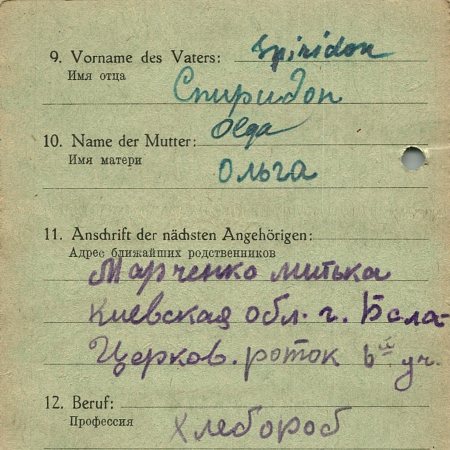 9. Vorname des Vaters: Spiridon
Имя отца
Спиридон
10. Name der Mutter: Olga
Имя матери
Ольга
11. Anschrift der nächsten Angehörigen:
Адрес ближайших родственников
Марченко митька
Киевская обл. г. Бела-
Церков. роток 6ый уч.
12. Beruf:
Профессия
Хлебороб